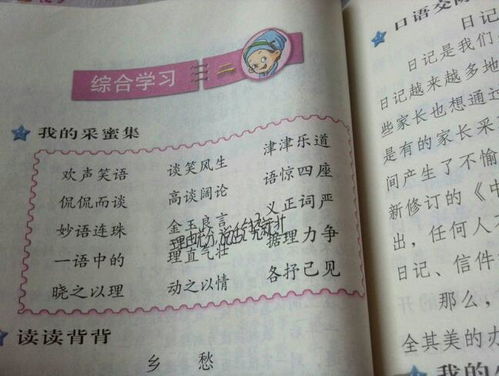 综合学习 三 二
我的采蜜集
欢声笑语 谈笑风生 津津乐道
侃侃而谈 高谈阔论 语惊四座
妙语连珠 金玉良言 义正词严
一语中的 理直气壮 据理力争
晓之以理 动之以情 各抒己见
读读背背
乡 愁
口语交际
日记
日记是我们
日记越来越多地
些家长也想通过
是有的家长采
间产生了不愉
新修订的《
出，任何人
日记、信件
那么，
全其美的办
我的